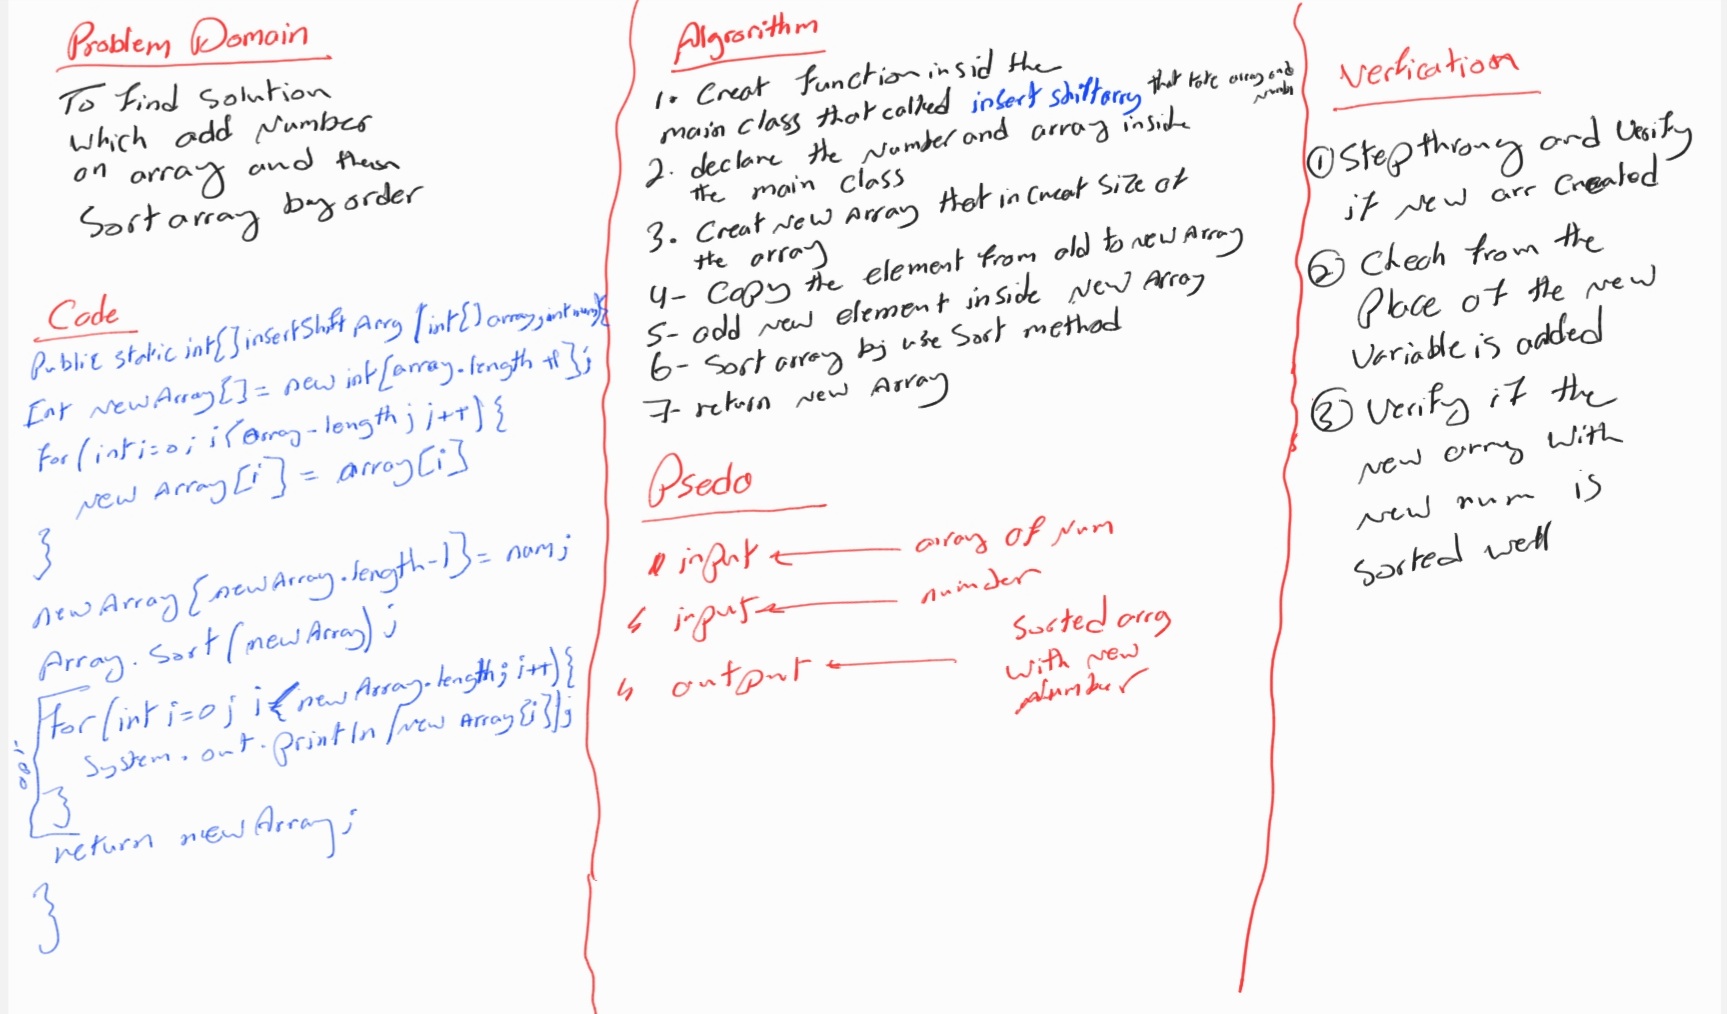 Problem Domain
To find solution
which add Number
on array and then
Sort array by order
Code
Public static int[] insertShift Arry (int[] array, int num){
Int newArray[] = new int[array.length +1];
for (int i=0; i<array.length; i++) {
new Array[i] = array[i]
}
newArray[newArray.length-1] = num;
Array.Sort(newArray);
for (int i=0; i<newArray.length; i++){
System.out.println(new Array[i]);
}
return newArray;
}
Algrorithm
1. Creat function insid the
main class that called insert shiftarry that take array and
2. declare the Number and array inside
the main class
3. Creat New Array that in creat size of
the array
4- Copy the element from old to new Array
5- add new element inside New Array
6- Sort array by use Sort method
7- return new Array
Psedo
input ← array of Num
input ← number
output ← Sorted arry
with new
Number
Verfication
① Step throny and Verify
if new arr Created
② Check from the
Place of the new
Variable is added
③ Verify if the
new arry with
new num is
Sorted well